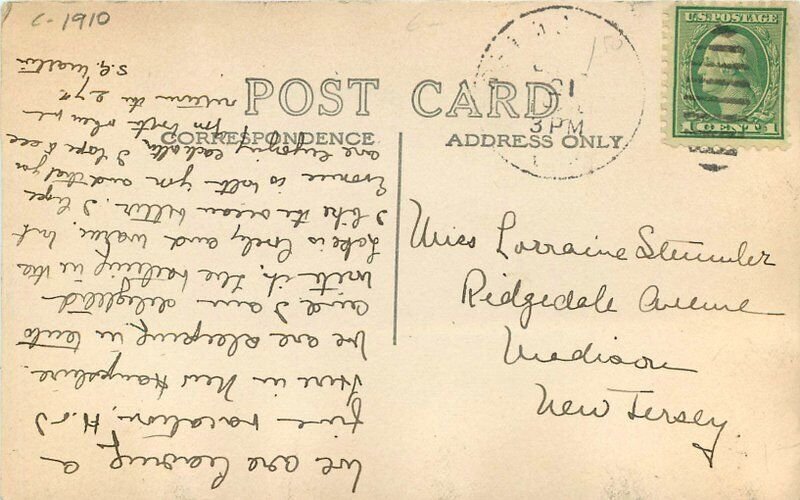 C-1910
POST CARD
CORRESPONDENCE
ADDRESS ONLY
U.S. POSTAGE
1 CENT 1
3 PM
Miss Lorraine Stemmler
Ridgedale Avenue
Madison
New Jersey.
We are having a
fine vacation, H. & I
Here in New Hampshire.
We are sleeping in tents
and I am delighted
with it. The bathing in the
Lake is lovely and warm, but
I like the ocean better. I hope
Eronie is with you and that you
are enjoying each other. I hope to see
you both when we
return the 27th
S. G.